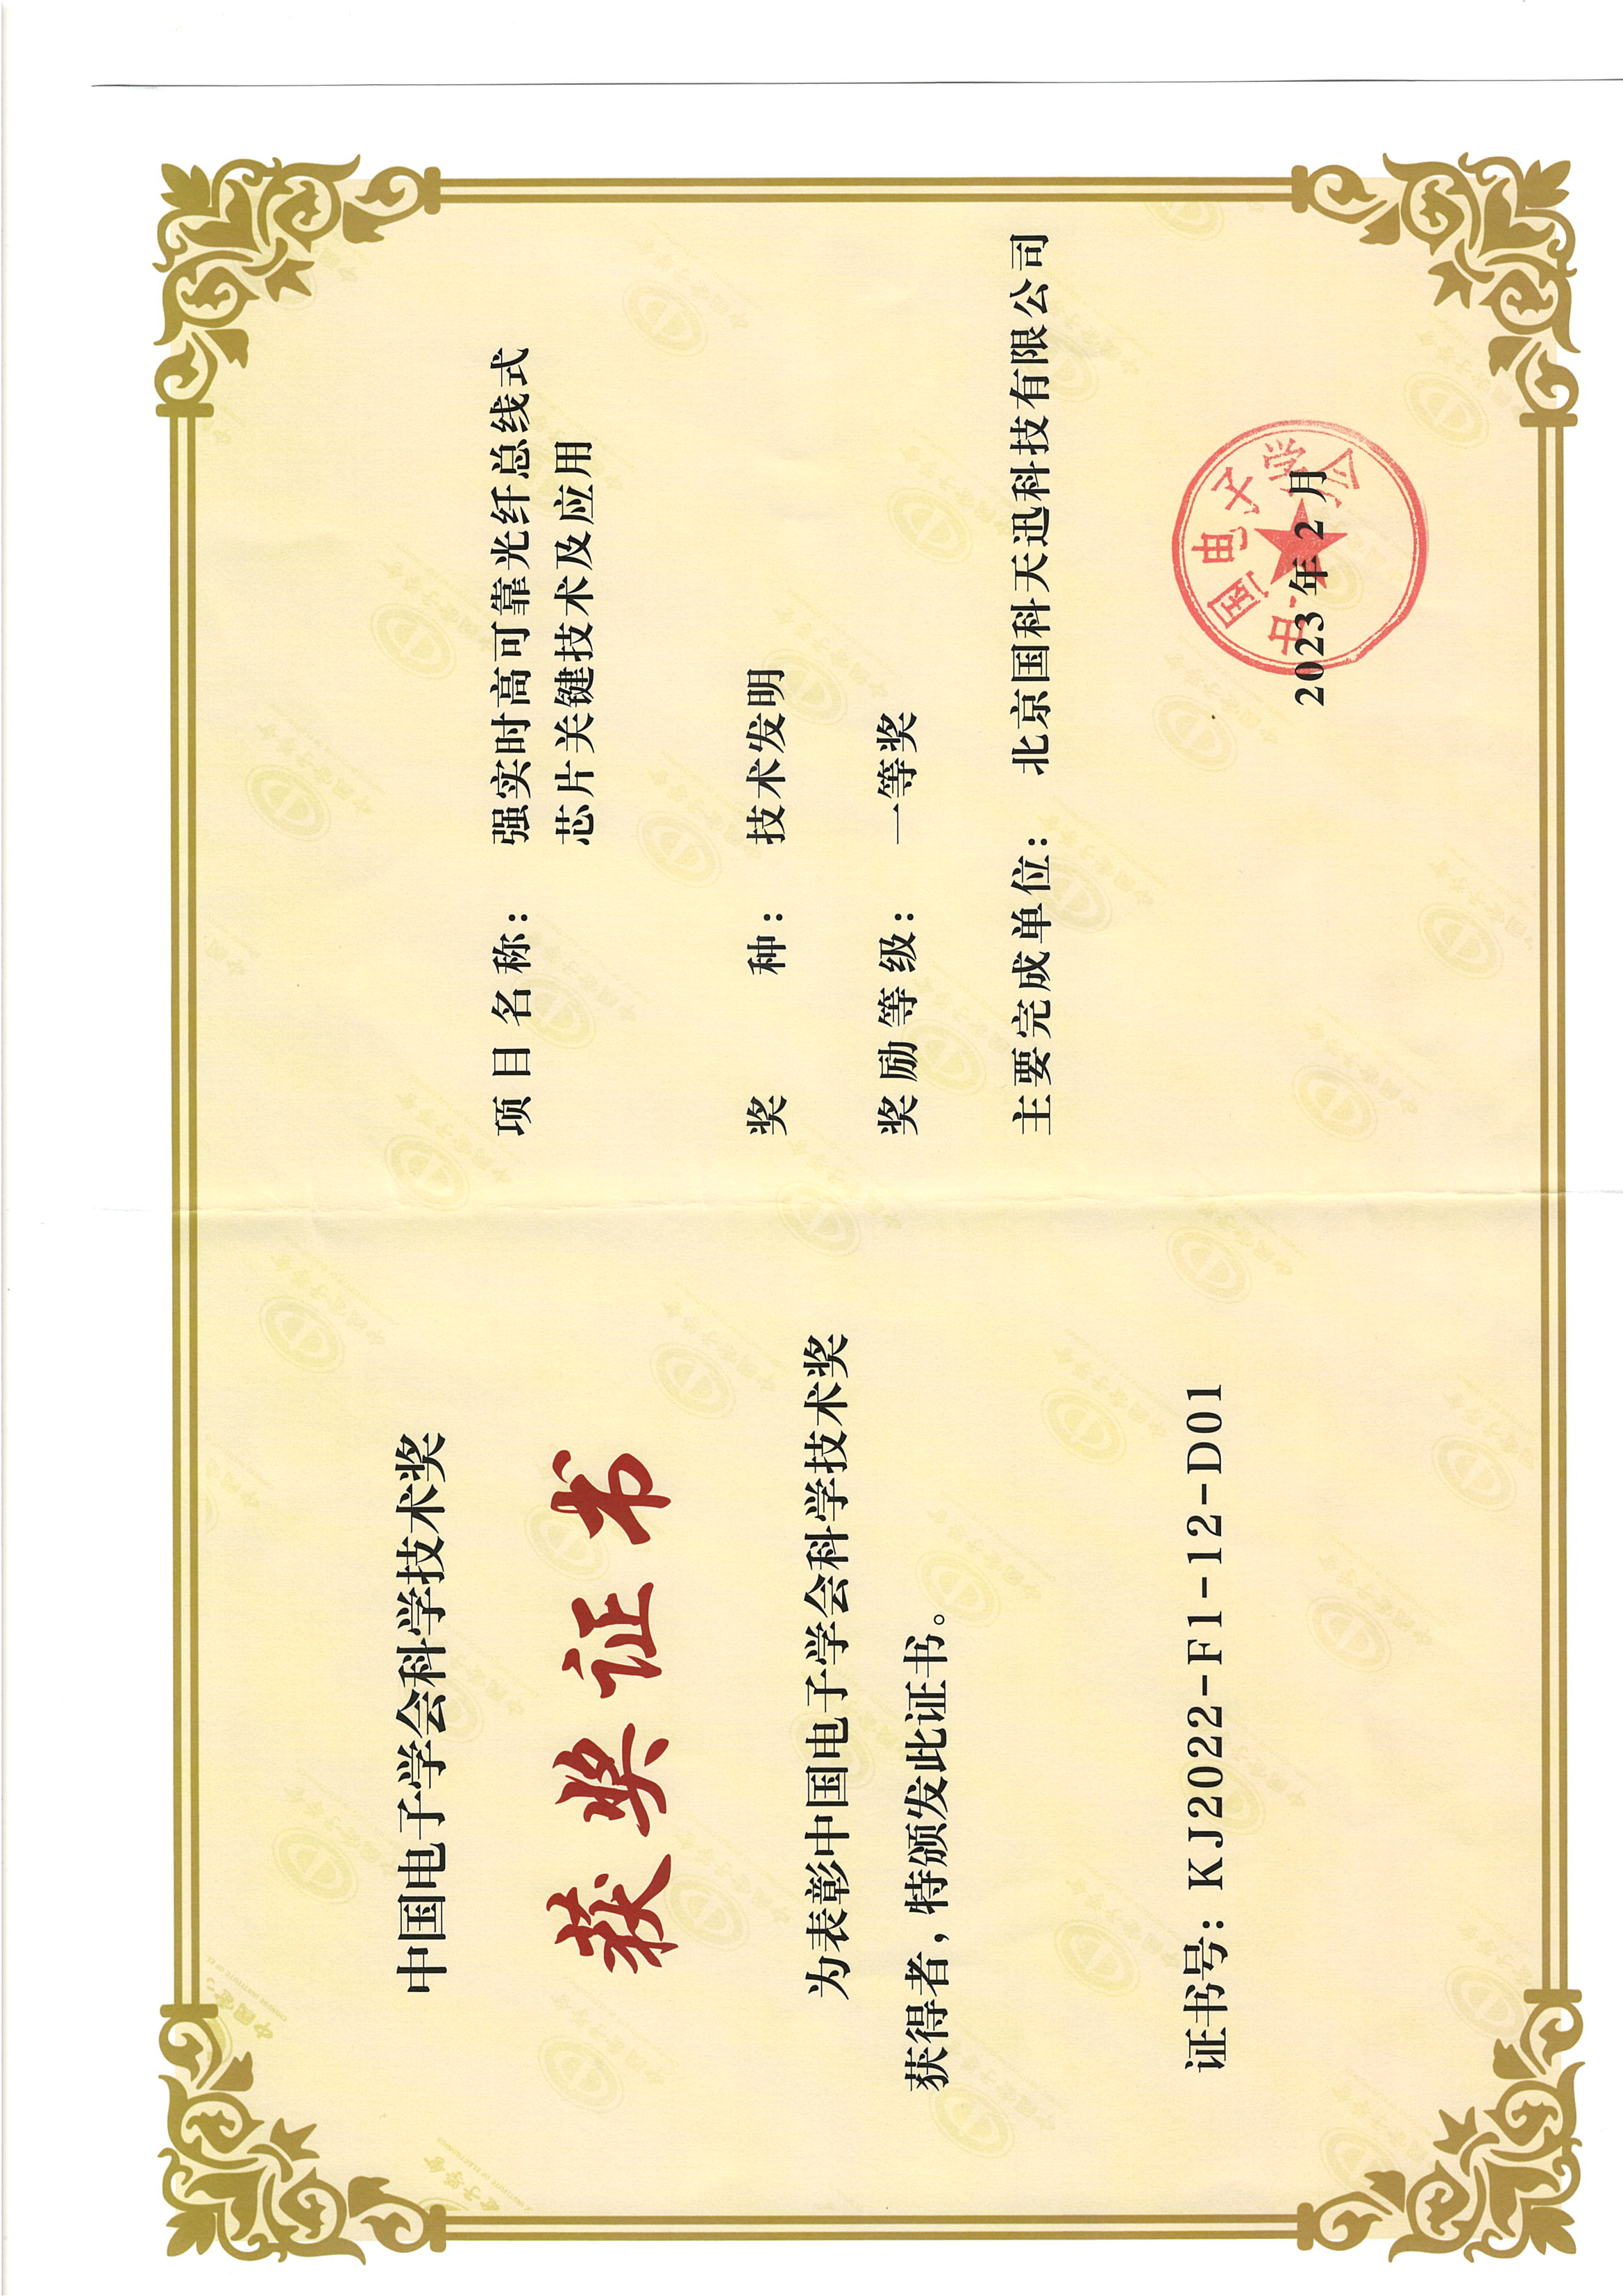 中国电子学会科学技术奖
获奖证书
为表彰中国电子学会科学技术奖
获得者，特颁发此证书。
证书号：KJ2022-F1-12-D01
项目名称： 强实时高可靠光纤总线式
芯片关键技术及应用
奖 种： 技术发明
奖励等级： 一等奖
主要完成单位： 北京国科天迅科技有限公司
中国电子学会
2023年2月